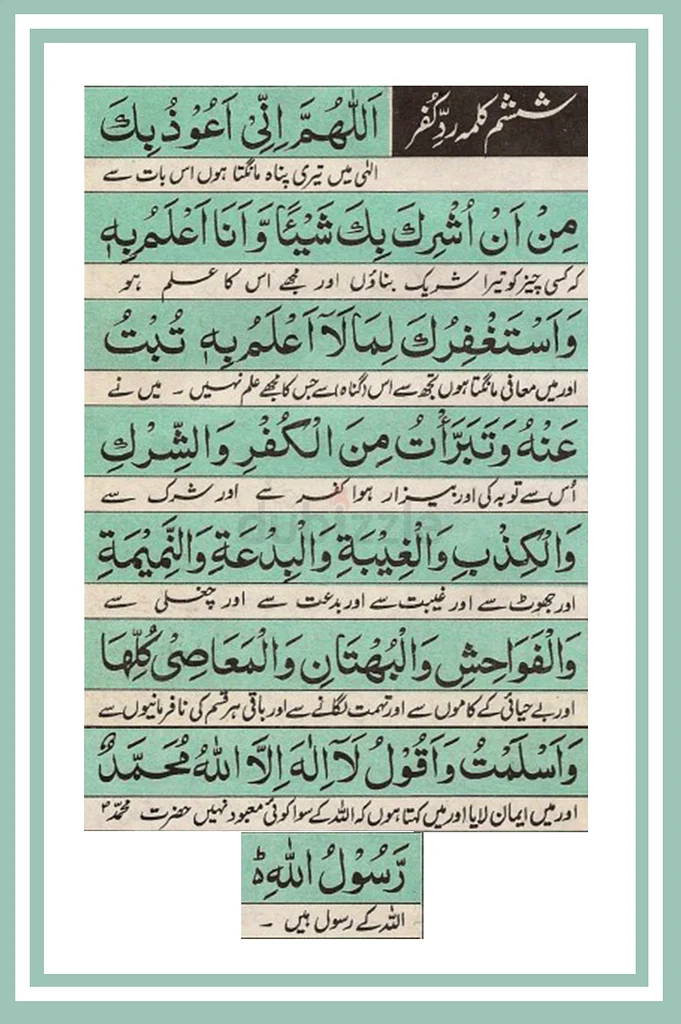 ششم کلمہ ردِّ کُفر
اَللّٰهُمَّ اِنِّیْۤ اَعُوْذُ بِكَ
الٰہی میں تیری پناہ مانگتا ہوں اس بات سے
مِنْ اَنْ اُشْرِكَ بِكَ شَیْئًا وَّ اَنَا اَعْلَمُ بِهٖ
کہ کسی چیز کو تیرا شریک بناؤں اور مجھے اس کا علم ہو
وَاَسْتَغْفِرُكَ لِمَا لَاۤ اَعْلَمُ بِهٖ تُبْتُ
اور میں معافی مانگتا ہوں تجھ سے اس (گناہ) سے جس کا مجھے علم نہیں ۔ میں نے
عَنْهُ وَتَبَرَّأْتُ مِنَ الْكُفْرِ وَالشِّرْكِ
اُس سے توبہ کی اور بیزار ہوا کفر سے اور شرک سے
وَالْكِذْبِ وَالْغِیْبَةِ وَالْبِدْعَةِ وَالنَّمِیْمَةِ
اور جھوٹ سے اور غیبت سے اور بدعت سے اور چغلی سے
dubizzle
وَالْفَوَاحِشِ وَالْبُهْتَانِ وَالْمَعَاصِیْ كُلِّهَا
اور بے حیائی کے کاموں سے اور تہمت لگانے سے اور باقی ہر قسم کی نافرمانیوں سے
وَاَسْلَمْتُ وَاَقُوْلُ لَاۤ اِلٰهَ اِلَّا اللّٰهُ مُحَمَّدٌ
اور میں ایمان لایا اور میں کہتا ہوں کہ اللہ کے سوا کوئی معبود نہیں حضرت محمّد ؐ
رَّسُوْلُ اللّٰهِؕ
اللہ کے رسول ہیں ۔